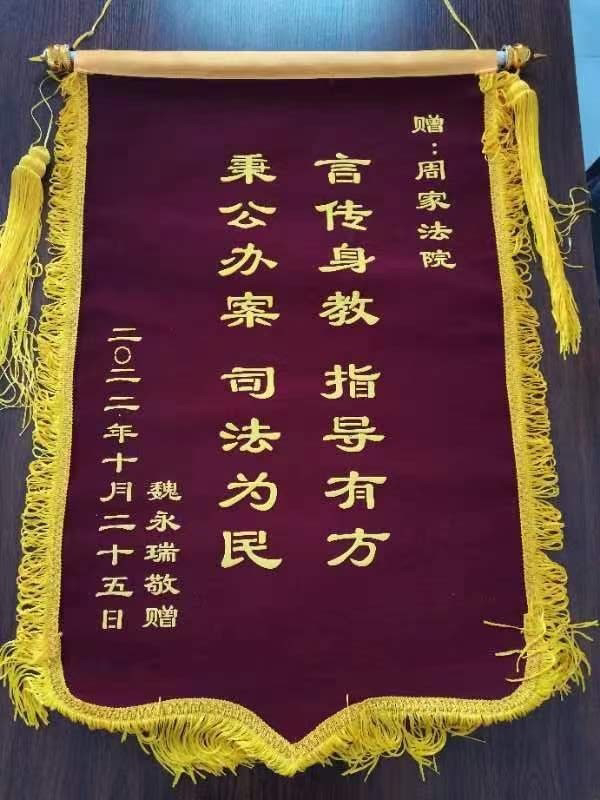 赠：周家法院
言传身教 指导有方
秉公办案 司法为民
魏永瑞敬赠
二〇二二年十月二十五日